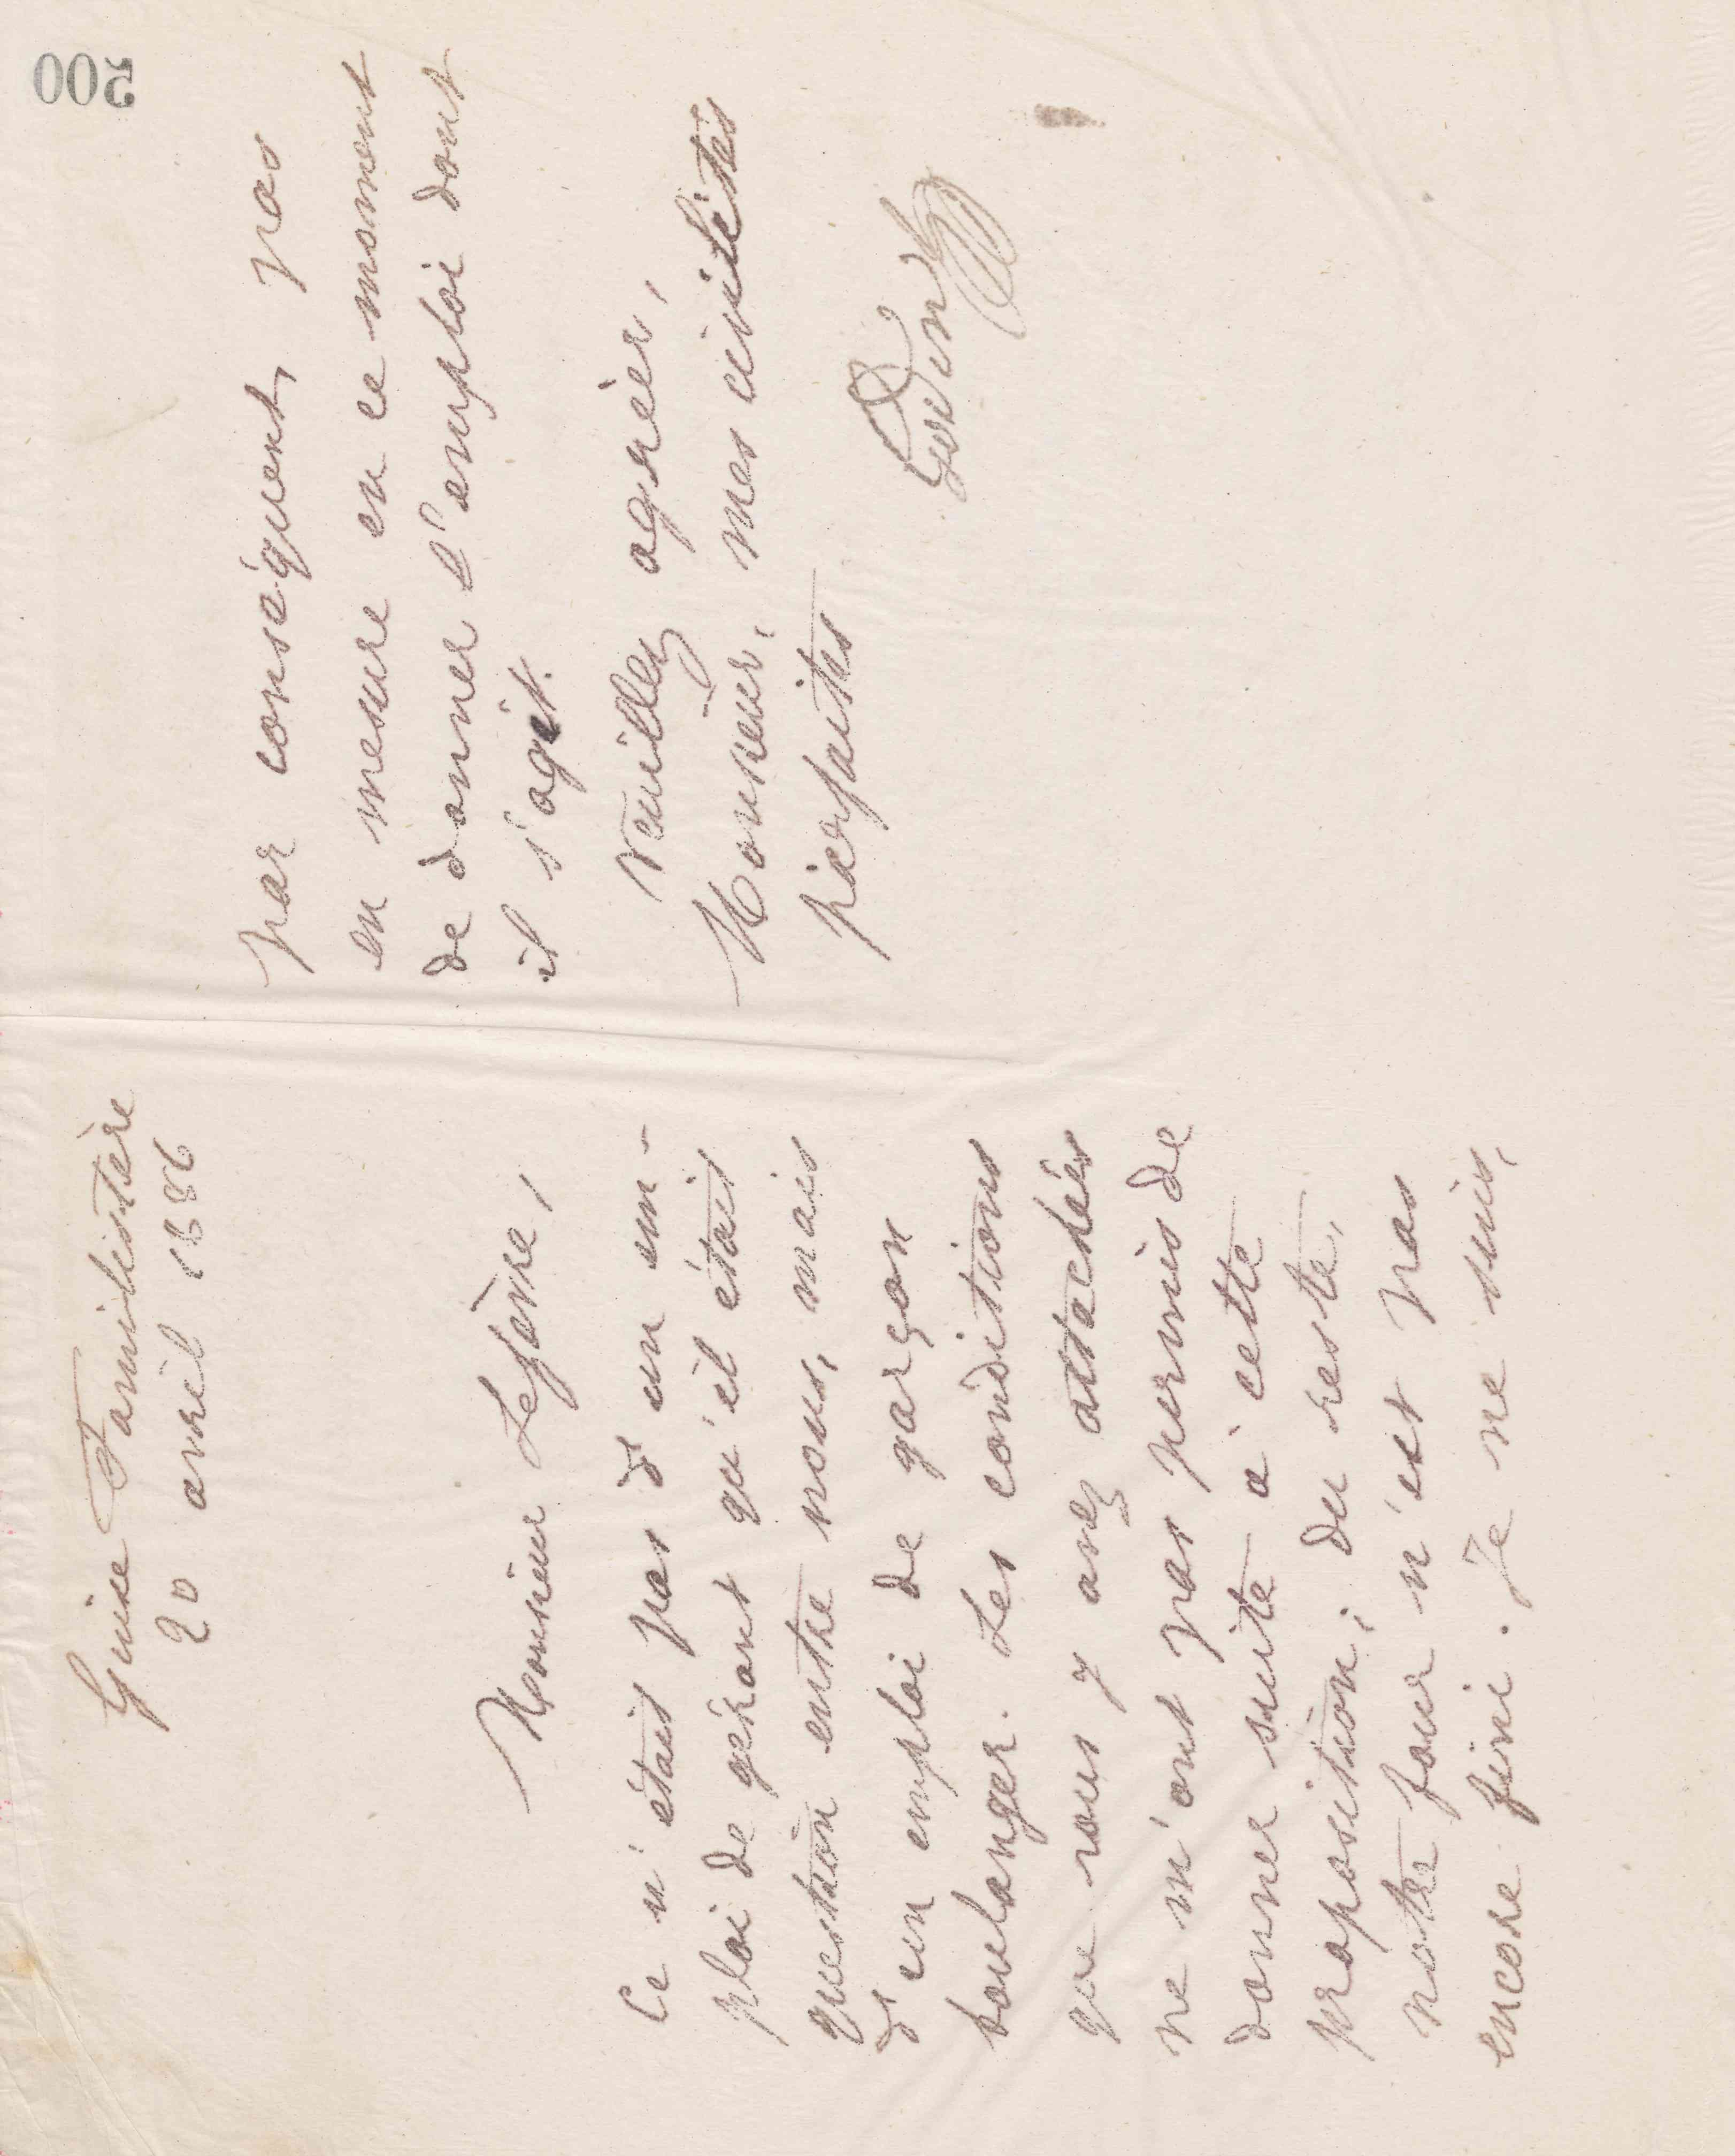 Guise Familistère
20 avril 1886
Monsieur Lefèvre,
Ce n'était pas d'un em-
ploi de gérant qu'il était
question entre nous, mais
d'un emploi de garçon
boulanger. Les conditions
que vous y avez attachées
ne m'ont pas permis de
donner suite à cette
proposition; du reste,
notre four n'est pas
encore fini. Je ne suis,
200
par conséquent, pas
en mesure en ce moment
de donner l'emploi dont
il s'agit.
Veuillez agréer,
Monsieur, mes civilités
parfaites
Godin